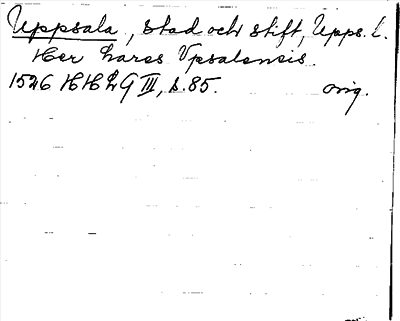 Uppsala, stad och stift, Upps. L.
Her Lares Vpsalensis.
1526 HH LG III, s. 85. orig.